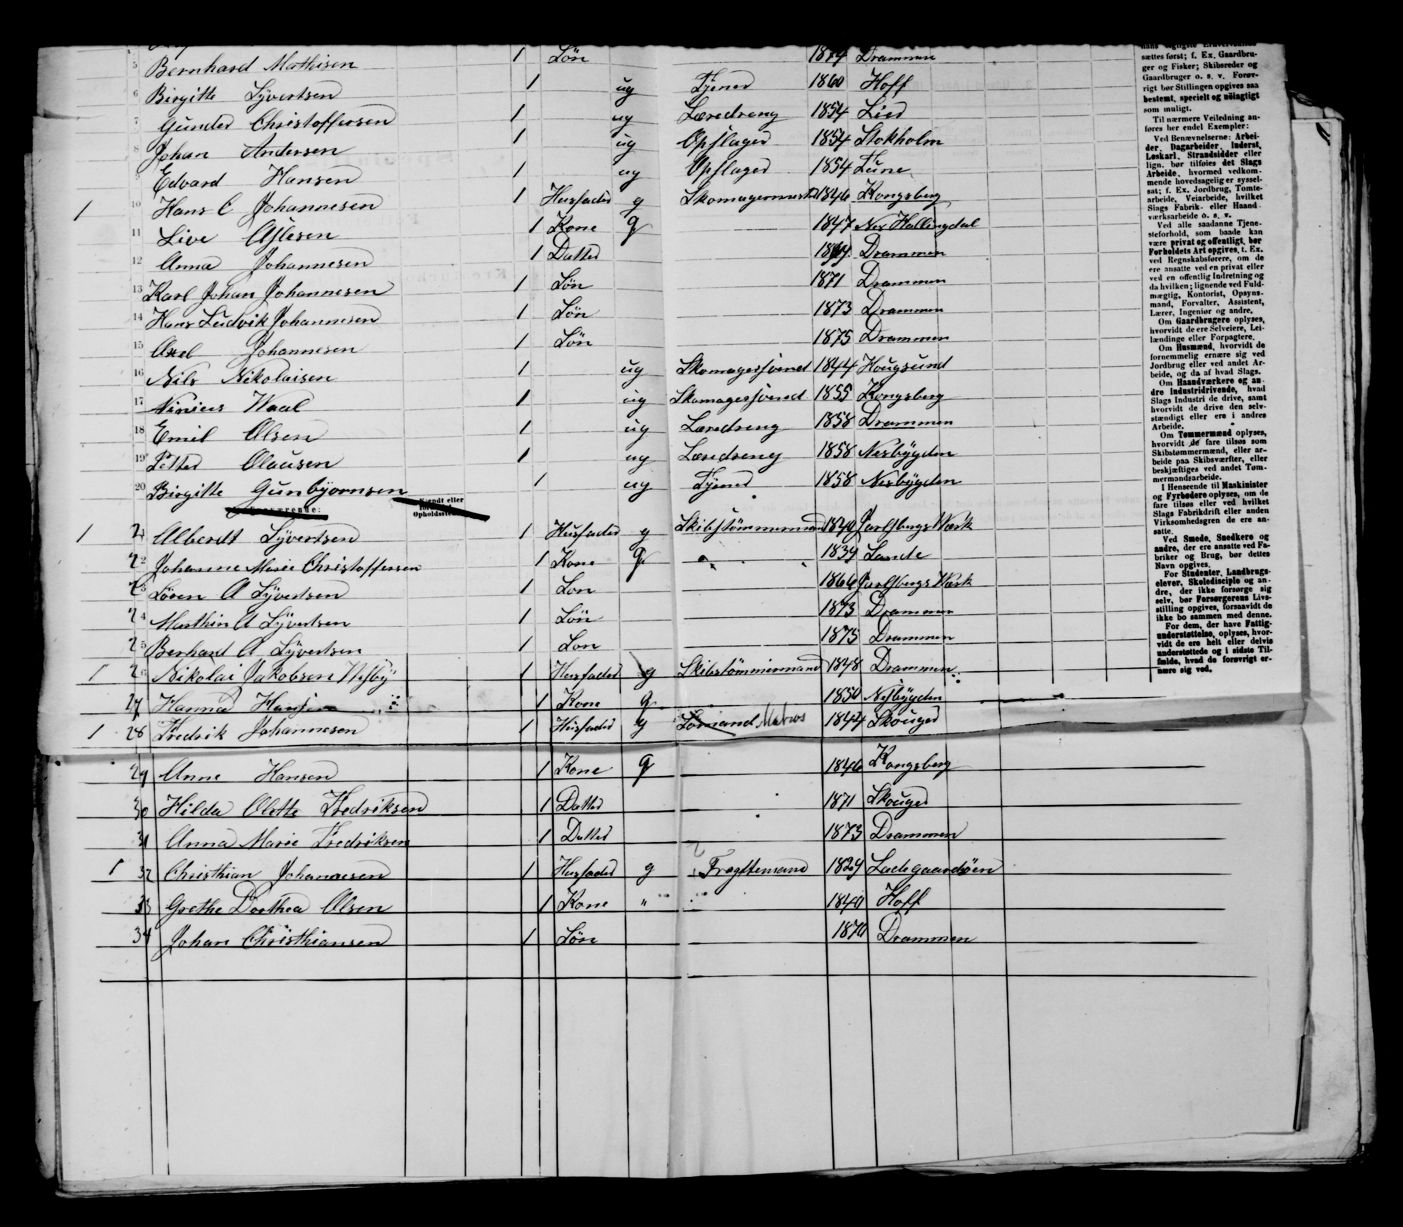 5 Bernhard Mathisen 1 Søn 1874 Drammen
6 Birgitte Syvertsen 1 ug Tjener 1860 Hoff
7 Gunder Christoffersen 1 ug Læredreng 1854 Lier
8 Johan Andersen 1 ug Opflager 1854 Stokholm
9 Edvard Hansen 1 ug Opflager 1854
1 10 Hans C Johannesen 1 Husfader g Skomagermester 1846 Kongsberg
11 Live 1 Kone g 1847 Nes Hallingdal
12 Anna Johannesen 1 Datter Drammen
13 Karl Johan Johannesen 1 Søn 1871 Drammen
14 Hans Ludvik Johannesen 1 Søn 1873 Drammen
15 Axel Johannesen 1 Søn 1875 Drammen
16 Nils Nikolaisen 1 ug Skomagersvend 1844 Hougsund
17 Waal 1 ug Skomagersvend 1855 Kongsberg
18 Emil Olsen 1 ug Læredreng 1858 Drammen
19 Petter Olausen 1 ug Læredreng 1858 Nesbÿgden
20 Birgitte Gunbjörnsen 1 ug Tjener 1858 Nesbÿgden
1 21 Alberdt Syvertsen 1 Husfader g Skibstömmermand 1840 Jarlsbergs Værk
22 Johanne Marie Christoffersen 1 Kone g 1839 Sande
23 Sören A Syvertsen 1 Son 1866 Jarlsbergs Værk
24 Mathin A Syvertsen 1 Søn 1873 Drammen
25 Berhard A Syvertsen 1 Son 1875 Drammen
1 26 Nikolai Jakobsen Nesbÿ 1 Husfader g Skibstömmermand 1848 Drammen
27 Hanna Hansen 1 Kone g 1850 Nesbÿgden
1 28 Fredrik Johannesen 1 Husfader g Sömand Matros 1844 Skouger
29 Anne Hansen 1 Kone g 1846 Kongsberg
30 Hilda Olette Fredriksen 1 Datter 1871 Skouger
31 Anna Marie Fredriksen 1 Datter 1873 Drammen
1 32 Christhian Johannesen 1 Husfader g Fragttemand 1829 Ladegaardsöen
33 Grethe Dorthea Olsen 1 Kone " 1840 Hoff
34 Johan Christhiansen 1 Søn 1870 Drammen
sættes først; f. Ex. Gaardbru-
ger og Fisker; Skibsreder og
Gaardbruger o. s. v. Forøv-
rigt bør Stillingen opgives saa
bestemt, specielt og nöiagtigt
som muligt.
Til nærmere Veiledning an-
føres her endel Exempler:
Ved Benævnelserne: Arbei-
der, Dagarbeider, Inderst,
Løskarl, Strandsidder eller
lign. bør tilføies det Slags
Arbeide, hvormed vedkom-
mende hovedsagelig er syssel-
sat; f. Ex. Jordbrug, Tomte-
arbeide, Veiarbeide, hvilket
Slags Fabrik- eller Haand-
værksarbeide o. s. v.
Ved alle saadanne Tjene-
steforhold, som baade kan
være privat og offentligt, bør
Forholdets Art opgives, f. Ex.
ved Regnskabsførere, om de
ere ansatte ved en privat eller
ved en offentlig Indretning og
da hvilken; lignende ved Fuld-
mægtig, Kontorist, Opsyns-
mand, Forvalter, Assistent,
Lærer, Ingeniør og andre.
Om Gaardbrugere oplyses,
hvorvidt de ere Selveiere, Lei-
lændinge eller Forpagtere.
Om Husmænd, hvorvidt de
fornemmelig ernære sig ved
Jordbrug eller ved andet Ar-
beide, og da af hvad Slags.
Om Haandværkere og an-
dre Industridrivende, hvad
Slags Industri de drive, samt
hvorvidt de drive den selv-
stændigt eller ere i andres
Arbeide.
Om Tømmermænd oplyses,
hvorvidt de fare tilsøs som
Skibstømmermænd, eller ar-
beide paa Skibsværfter, eller
beskjæftiges ved andet Tøm-
mermandsarbeide.
I Henseende til Maskinister
og Fyrbødere oplyses, om de
fare tilsøs eller ved hvilket
Slags Fabrikdrift eller anden
Virksomhedsgren de ere an-
satte.
Ved Smede, Snedkere og
andre, der ere ansatte ved Fa-
briker og Brug, bør dettes
Navn opgives.
For Studenter, Landbrugs-
elever, Skoledisciple og an-
dre, der ikke forsørge sig
selv, bør Forsørgerens Livs-
stilling opgives, forsaavidt de
ikke bo sammen med denne.
For dem, der have Fattig-
understøttelse, oplyses, hvor-
vidt de ere helt eller delvis
understøttede og i sidste Til-
fælde, hvad de forøvrigt er-
nære sig ved.